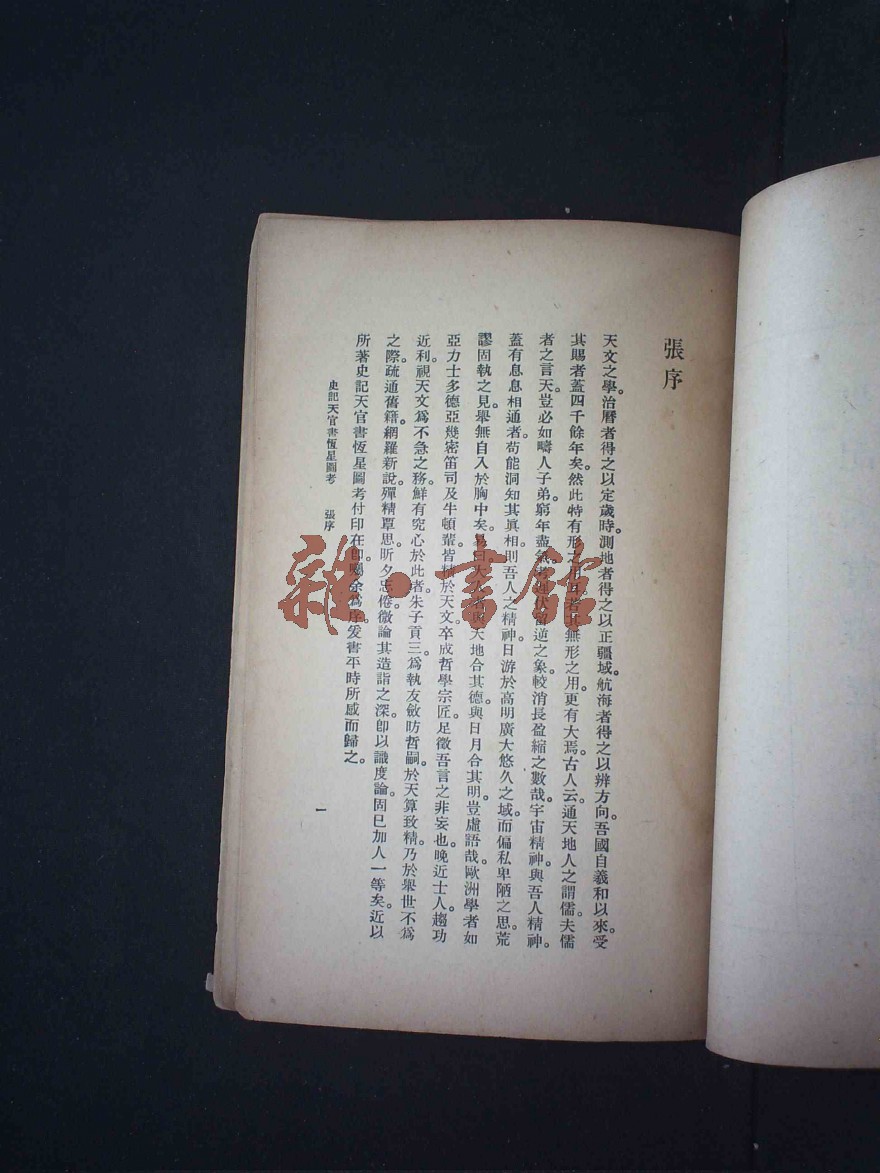 張序
天文之學治曆者得之以定歲時。測地者得之以正疆域。航海者得之以辨方向。吾國自羲和以來。受
其賜者蓋四千餘年矣。然此特有形之用耳。若其無形之用。更有大焉。古人云。通天地人之謂儒。夫儒
者之言天。豈必如疇人子弟。窮年盡氣。考遲伏留逆之象。較消長盈縮之數哉。宇宙精神。與吾人精神。
蓋有息息相通者。苟能洞知其眞相。則吾人之精神。日游於高明廣大悠久之域。而偏私卑陋之思。荒
謬固執之見。舉無自入於胸中矣。易曰大人者與天地合其德。與日月合其明。豈虛語哉。歐洲學者如
亞力士多德亞幾密笛司及牛頓輩。皆精於天文。卒成哲學宗匠。足徵吾言之非妄也。晚近士人。趨功
近利。視天文爲不急之務。鮮有究心於此者。朱子貢三。爲執友斂防哲嗣。於天算致精。乃於舉世不爲
之際。疏通舊籍。網羅新說。殫精覃思。昕夕忘倦。微論其造詣之深。卽以識度論。固已加人一等矣。近以
所著史記天官書恆星圖考付印在卽。囑余爲序。爰書平時所感而歸之。
史記天官書恆星圖考 張序
一
雜·書館